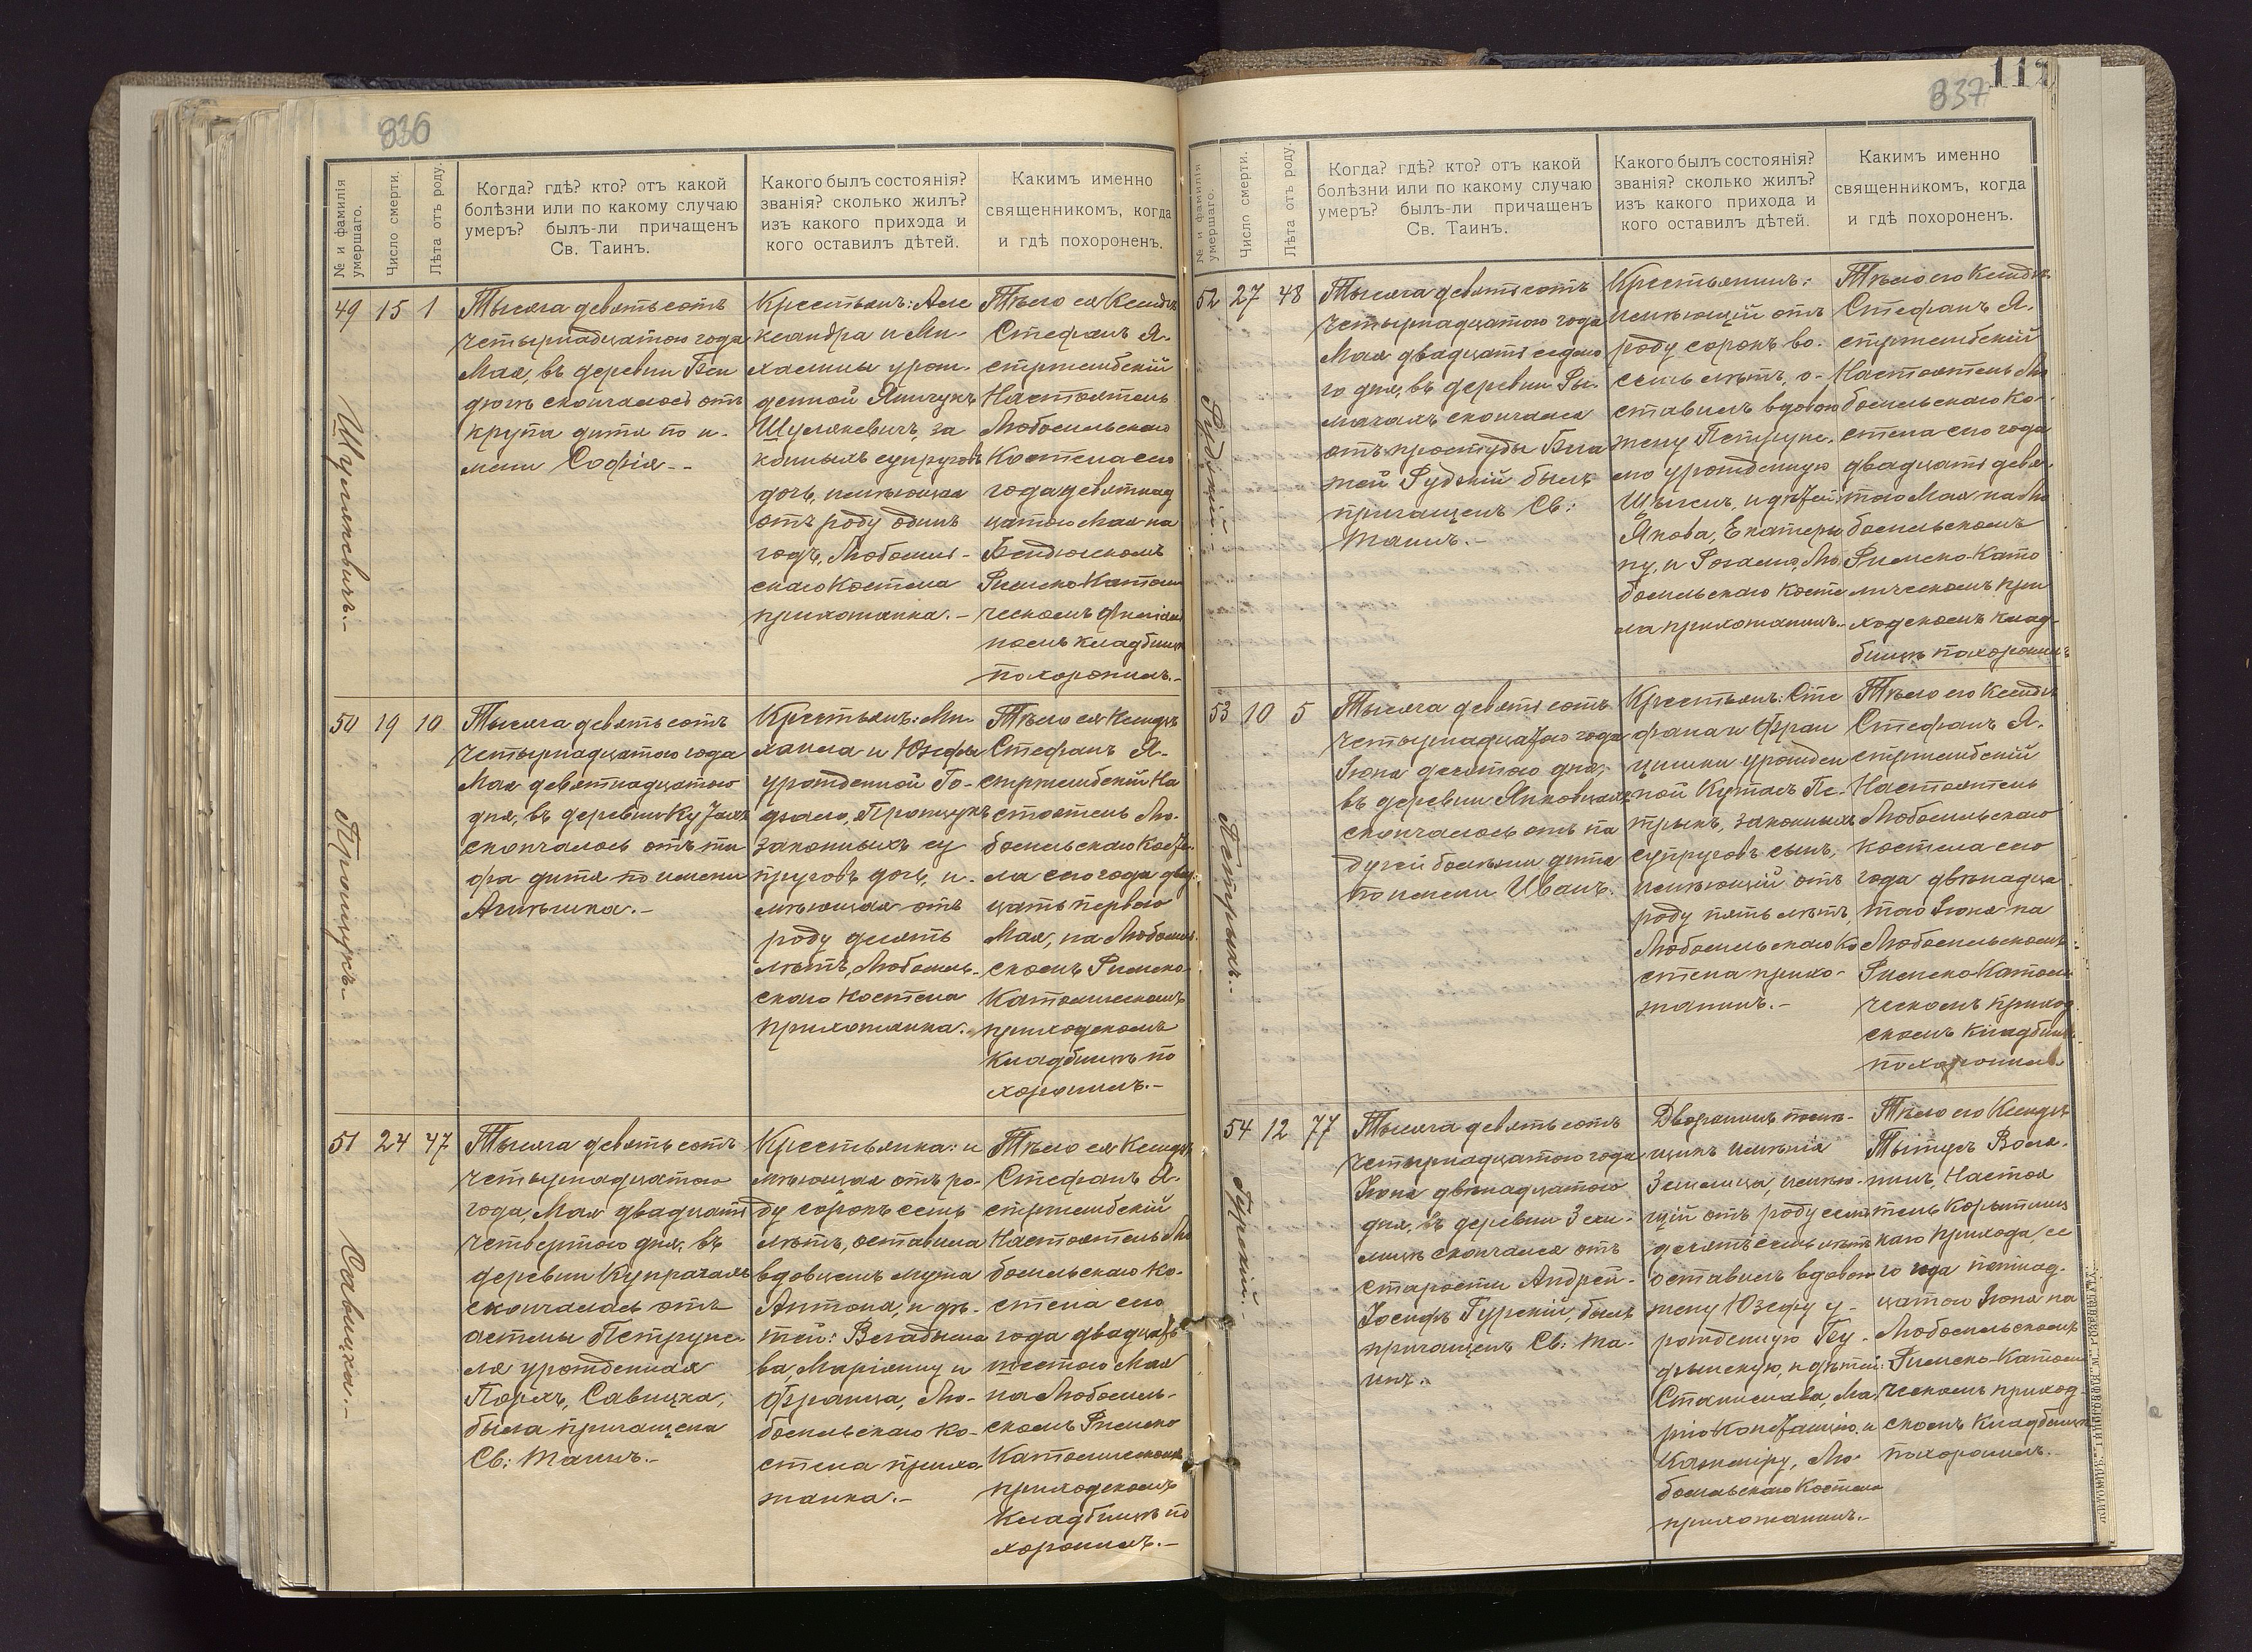 836
№ и фамилія
умершаго.
Число смерти.
Лѣта отъ роду.
Когда? гдѣ? кто? отъ какой
болѣзни или по какому случаю
умеръ? былъ-ли причащенъ
Св. Таинъ.
Какого былъ состоянія?
званія? сколько жилъ?
изъ какого прихода и
кого оставилъ дѣтей.
Какимъ именно
священникомъ, когда
и гдѣ похороненъ.
49
Шулякевичъ.-
15
1
Тысяча девятьсотъ
четырнадцатого года
Мая, въ деревни Бен
дюгѣ скончалось отъ
крупа дитя по и-
мени Софія.-
Крестьянъ: Але
ксандра и Ми-
халины урож-
денной Янчукъ
Шулякевичъ, за
конныхъ супруговъ
дочь, имѣющая
отъ роду одинъ
годъ, Любомль-
скаго Костела
прихожанка.-
Тѣло ея Ксендзъ
Стефанъ Я-
стржембскій
Настоятель
Любомльскаго
Костела сего
года девятнад
цатого Мая на
Бендюжскомъ
Римско-Католи
ческомъ филіаль
номъ кладбищѣ
похоронилъ.-
50
Процукъ.-
19
10
Тысяча девятьсотъ
четырнадцатого года
Мая девятнадцатого
дня, въ деревни
скончалось отъ ти
фа дитя по имени
Агнѣшка.-
Крестьянъ: Ми-
хаила и Юзефы
урожденной Го-
Процукъ
законныхъ су
пруговъ дочь, и-
мѣющая отъ
роду десять
лѣтъ, Любомль-
скаго Костела
прихожанка.-
Тѣло ея Ксендзъ
Стефанъ Я-
стржембскій На
стоятель Лю-
бомльскаго Косте-
ла сего года двад-
цать перваго
Мая, на Любомль-
скомъ Римско-
Католическомъ
приходскомъ
Кладбищѣ по
хоронилъ.-
51
Савицка.-
24
47
Тысяча девятьсотъ
четырнадцатого
года, Мая двадцать
четвертого дня, въ
деревни Купрачахъ
скончалась отъ
астмы Петруне-
ля урожденная
Савицка,
была причащена
Св: Таинъ.-
Крестьянка: и
мѣющая отъ ро-
ду сорокъ семь
лѣтъ, оставила
вдовцемъ мужа
Антона, и дѣ-
тей: Владысла
ва, Маріянну и
Франца, Лю-
бомльскаго Ко-
стела прихо-
жанка.-
Тѣло ея Ксендзъ
Стефанъ Я-
стржембскій
Настоятель Лю
бомльскаго Ко-
стела сего
года двадцать
шестого Мая
на Любомль-
скомъ Римско
Католическомъ
приходскомъ
Кладбищѣ по
хоронилъ.-
837
№ и фамилія
умершаго.
Число смерти.
Лѣта отъ роду.
Когда? гдѣ? кто? отъ какой
болѣзни или по какому случаю
умеръ? былъ-ли причащенъ
Св. Таинъ.
Какого былъ состоянія?
званія? сколько жилъ?
изъ какого прихода и
кого оставилъ дѣтей.
Какимъ именно
священникомъ, когда
и гдѣ похороненъ.
52
Рудзкій.-
27
48
Тысяча девятьсотъ
четырнадцатого года
Мая двадцать седмо
го дня, въ деревни Ры-
мачахъ скончался
отъ простуды Бла
жей Рудзкій былъ
причащенъ Св:
Таинъ.-
Крестьянинъ:
имѣющій отъ
роду сорокъ во-
семь лѣтъ, о-
ставилъ вдовою
жену Петруне-
лю урожденную
и дѣтей:
Якова, Екатери
ну, и Розалію, Лю
бомльскаго Косте
ла прихожанинъ.-
Тѣло его Ксендзъ
Стефанъ Я-
стржембскій
Настоятель Лю
бомльскаго Ко-
стела сего года
двадцать девя-
таго Мая на Лю
бомльскомъ
Римско-Като
лическомъ при
ходскомъ Клад-
бищѣ похоронилъ
53
Петрыкъ.-
10
5
Тысяча девятьсотъ
четырнадцатого года
Іюня десятого дня,
въ деревни Янковцахъ
скончалось отъ па
дучей болѣзни дитя
по имени Иванъ.
Крестьянъ: Сте
фана и Фран
цишки урожден
ной Куташ Пе-
трыкъ, законныхъ
супруговъ сынъ,
имѣющій отъ
роду пять лѣтъ,
Любомльскаго Ко
стела прихо-
жанинъ.-
Тѣло его Ксендзъ
Стефанъ Я-
стржембскій
Настоятель
Любомльскаго
Костела сего
года двѣнадца
таго Іюня на
Любомльскомъ
Римско Католи
ческомъ приход
скомъ Кладбищѣ
похоронилъ.
54
Гурскій.
12
77
Тысяча девятьсотъ
четырнадцатого года
Іюня двѣнадцатого
дня, въ деревни Зем-
лицѣ скончался отъ
старости Андрей-
Іосифъ Гурскій, былъ
причащенъ Св: Та-
инъ.
Дворянинъ помѣ-
щикъ имѣнія
Земмица, имѣю-
щій отъ роду семь
десятъ семь лѣтъ
оставилъ вдовою
жену Юзефу у-
рожденную
и дѣтей:
Станислава, Ма
рію Констанцію и
Казиміру, Лю-
бомльскаго Костела
прихожанинъ.-
Тѣло его Ксендзъ
Титусъ
Настоя
тель Корытниц
каго Прихода, се
го года пятнад-
цатого Іюня на
Любомльскомъ
Римско-Католи
ческомъ приход-
скомъ Кладбищѣ
похоронилъ.-